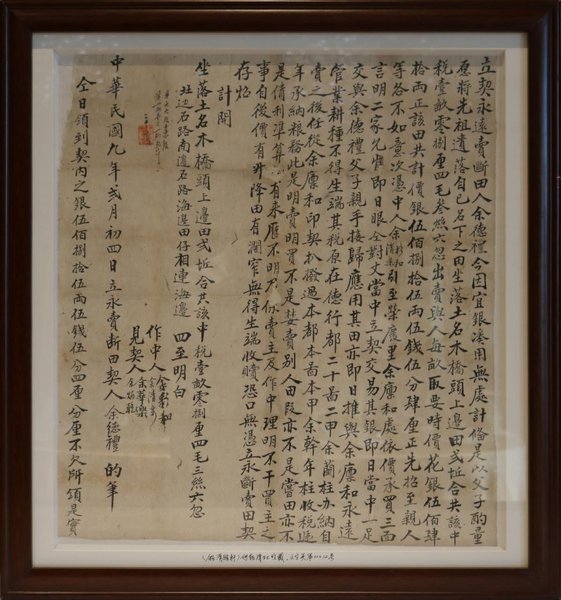 立契永遠賣斷田人余德禮今因宜銀湊用無處計備是以父子酌量
愿將先祖遺落自己名下之田坐落土名木橋頭上邊田弍坵合共該中
稅壹畝零捌厘四毛叁絲六忽出賣與人每畝取要時價花銀伍佰肆
拾両正該田共計價銀伍佰捌拾伍両伍錢伍分肆厘正先招至親人
等各不如意次憑中人余引至榮慶里余廉和處依價承買三面
言明二家允愜即日眼仝對丈當中立契交易其銀即日當中一足
交與余德禮父子親手接歸應用其田亦即日推與余廉和永遠
管業耕種不得生端其稅原在德行都二十啚二甲余蘭柱办納自
賣之後任從余廉和印契扒撥過本都本啚本甲余幹年柱收稅遞
年承納粮務此是明賣明買不是婪賣別人田段亦不是當田亦不
是債利準算如有來歷不明不你賣主及作中理明不干買主之
事自後價有升降田有濶窄無得生端收贖恐口無憑立永斷賣田契
存炤
計開
坐落土名木橋頭上邊田弍坵合共該中稅壹畝零捌厘四毛三絲六忽
北边石路南邉石路海邉田仔相連海邉 四至明白
作中人余
見契人余
中華民國九年弍月初四日立永賣斷田契人余德禮 的筆
仝日領到契內之銀伍佰捌拾伍両伍錢伍分四厘 分厘不欠所領是實